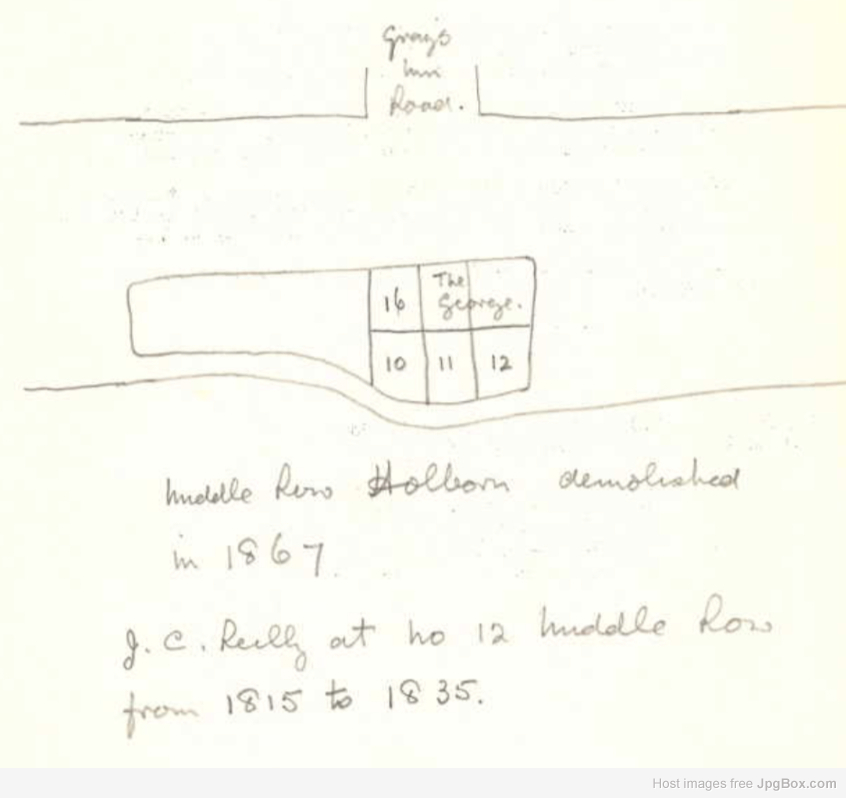 Gray's
Inn
Road.
The
16 George.
10 11 12
Middle Row Holborn demolished
in 1867.
J. C. Reilly at no 12 Middle Row
from 1815 to 1835.
Host images free JpgBox.com